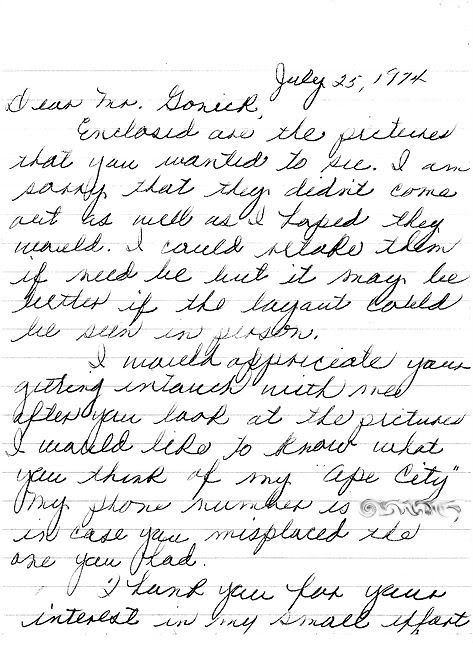 July 25, 1974
Dear Mr. Gonick,
Enclosed are the pictures
that you wanted to see. I am
sorry that they didn't come
out as well as I hoped they
would. I could retake them
if need be but it may be
better if the layout could
be seen in person.
I would appreciate your
getting intouch with me
after you look at the pictures
I would like to know what
you think of my "Ape City"
My phone number is
in case you misplaced the
one you had.
Thank you for your
interest in my small effort